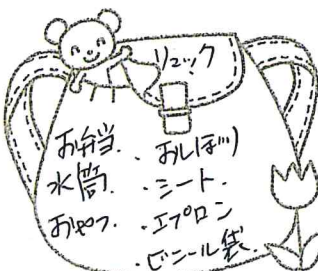 リュック
お弁当. ・おしぼり
水筒. ・シート.
おやつ. ・エプロン
・ビニール袋.